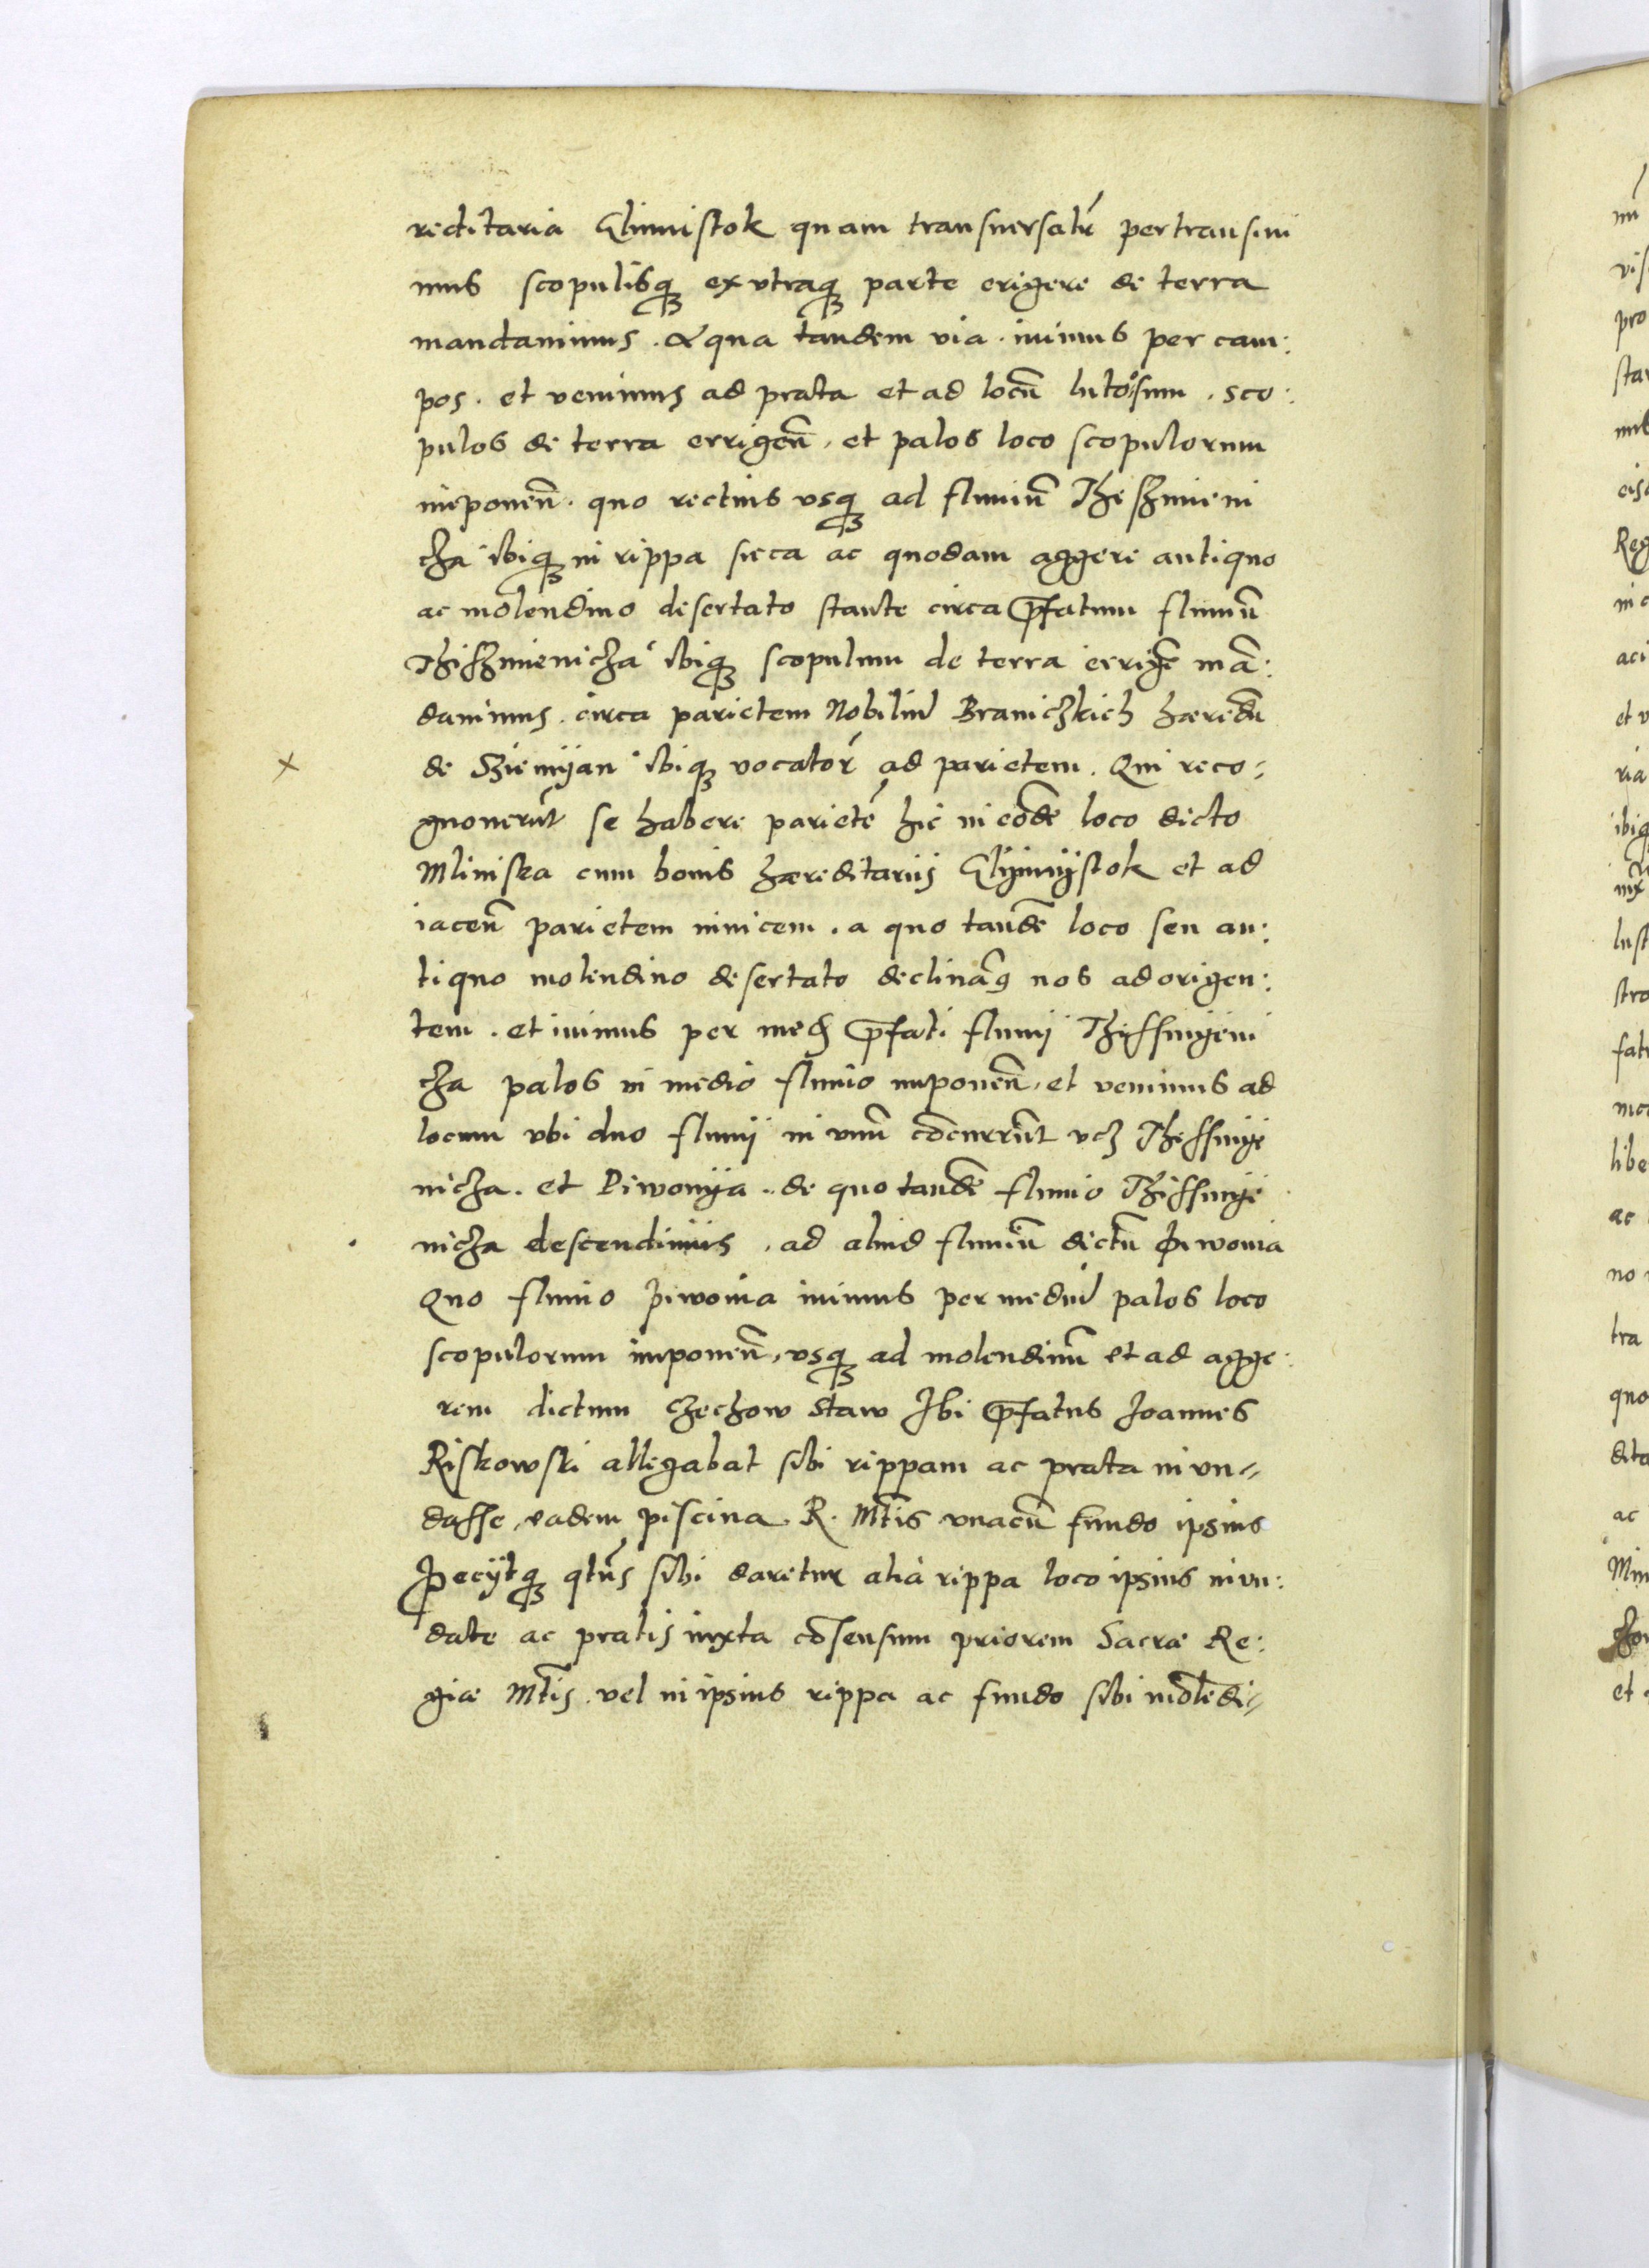 reditaria Glinnistok quam transuersalr̃ pertransiui
mus scopulisq; ex vtraq; parte erigere de terra
mandauimus. A qua tandem via. iuimus per cam:
pos. et venimus ad prata et ad locũ lutosum. sco:
pulos de terra errigeñ, et palos loco scopulorum
imponeñ. quo rectius vsq; ad fluuiũ Theszmieni
cza ibiq; in rippa sicca ac quodam aggere antiquo
ac molendino desertato stante circa p̃fatum fluuiũ
Thiszmienicza ibiq; scopulum de terra errigẽ mã:
dauimus. circa parietem Nobiliũ Braniczkich hæredũ
de Sziemijan ibiq; vocator̃ ad parietem. Qui reco:
gnouerũt se habere parietẽ hic in eodẽ loco dicto
Mliniska cum bonis hæreditariis Glijnnijstok et ad
iaceñ parietem inuicem. a quo tandẽ loco seu an:
tiquo molendino desertato declinãs nos ad origen:
tem. et iuimus per med p̃fati fluuij Thiessmijeni
cza palos in medio fluuio imponeñ, et venimus ad
locum vbi duo fluuij in vnũ cõcurrũt vcz Thessmije
nicza. et Piwonija. de quo tandẽ fluuio Thissmije
nicza descendimus, ad aliud fluuiũ dictũ Piwonia
Quo fluuio piwonia iuimus per mediũ palos loco
scopulorum imponeñ, vsq; ad molendinũ et ad agge:
rem dictum Czechow staw Ibi p̃fatus Joannes
Riskowski allegabat sibi rippam ac prata inun=
dasse, eadem piscina R. Mtis vnacũ fundo ipsius
Pecijtq; qtũs sibi daretur alia rippa loco ipsius inun:
date ac pratis iuxta cõsensum priorem Sacræ Re:
giæ Mtis. vel in ipsius rippa ac fundo sibi molẽdi=